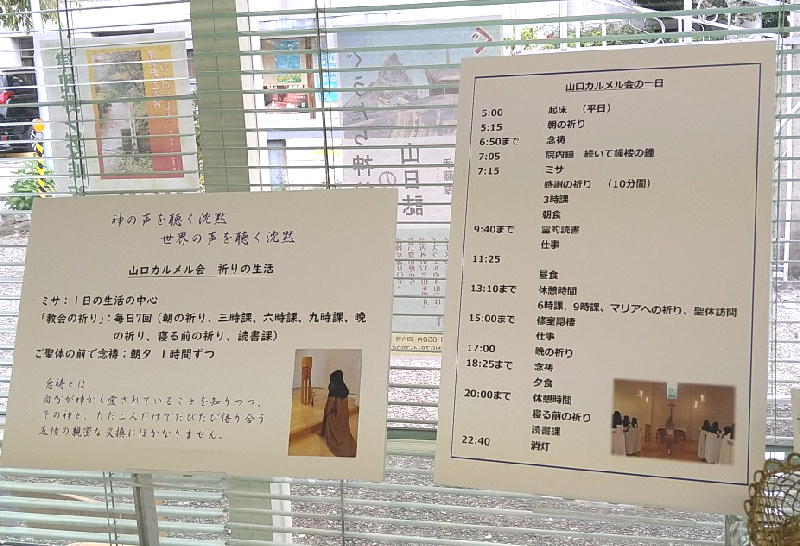 神の声を聴く沈黙
世界の声を聴く沈黙
山口カルメル会 祈りの生活
ミサ：１日の生活の中心
「教会の祈り」：毎日7回（朝の祈り、三時課、六時課、九時課、晩
の祈り、寝る前の祈り、読書課）
ご聖体の前で念祷：朝夕 １時間ずつ
念祷とは、
自分が神から愛されていることを知りつつ、
その神と、ただ二人だけでたびたび語り合う
友情の親密な交換にほかなりません。
山口カルメル会の一日
5:00 起床 （平日）
5:15 朝の祈り
6:50まで 念祷
7:05 院内鐘 続いて鐘楼の鐘
7:15 ミサ
感謝の祈り （10分間）
3時課
朝食
9:40まで 霊的読書
仕事
11:25
昼食
13:10まで 休憩時間
6時課、9時課、マリアへの祈り、聖体訪問
15:00まで 修室隠棲
仕事
17:00 晩の祈り
18:25まで 念祷
夕食
20:00まで 休憩時間
寝る前の祈り
読書課
22:40 消灯